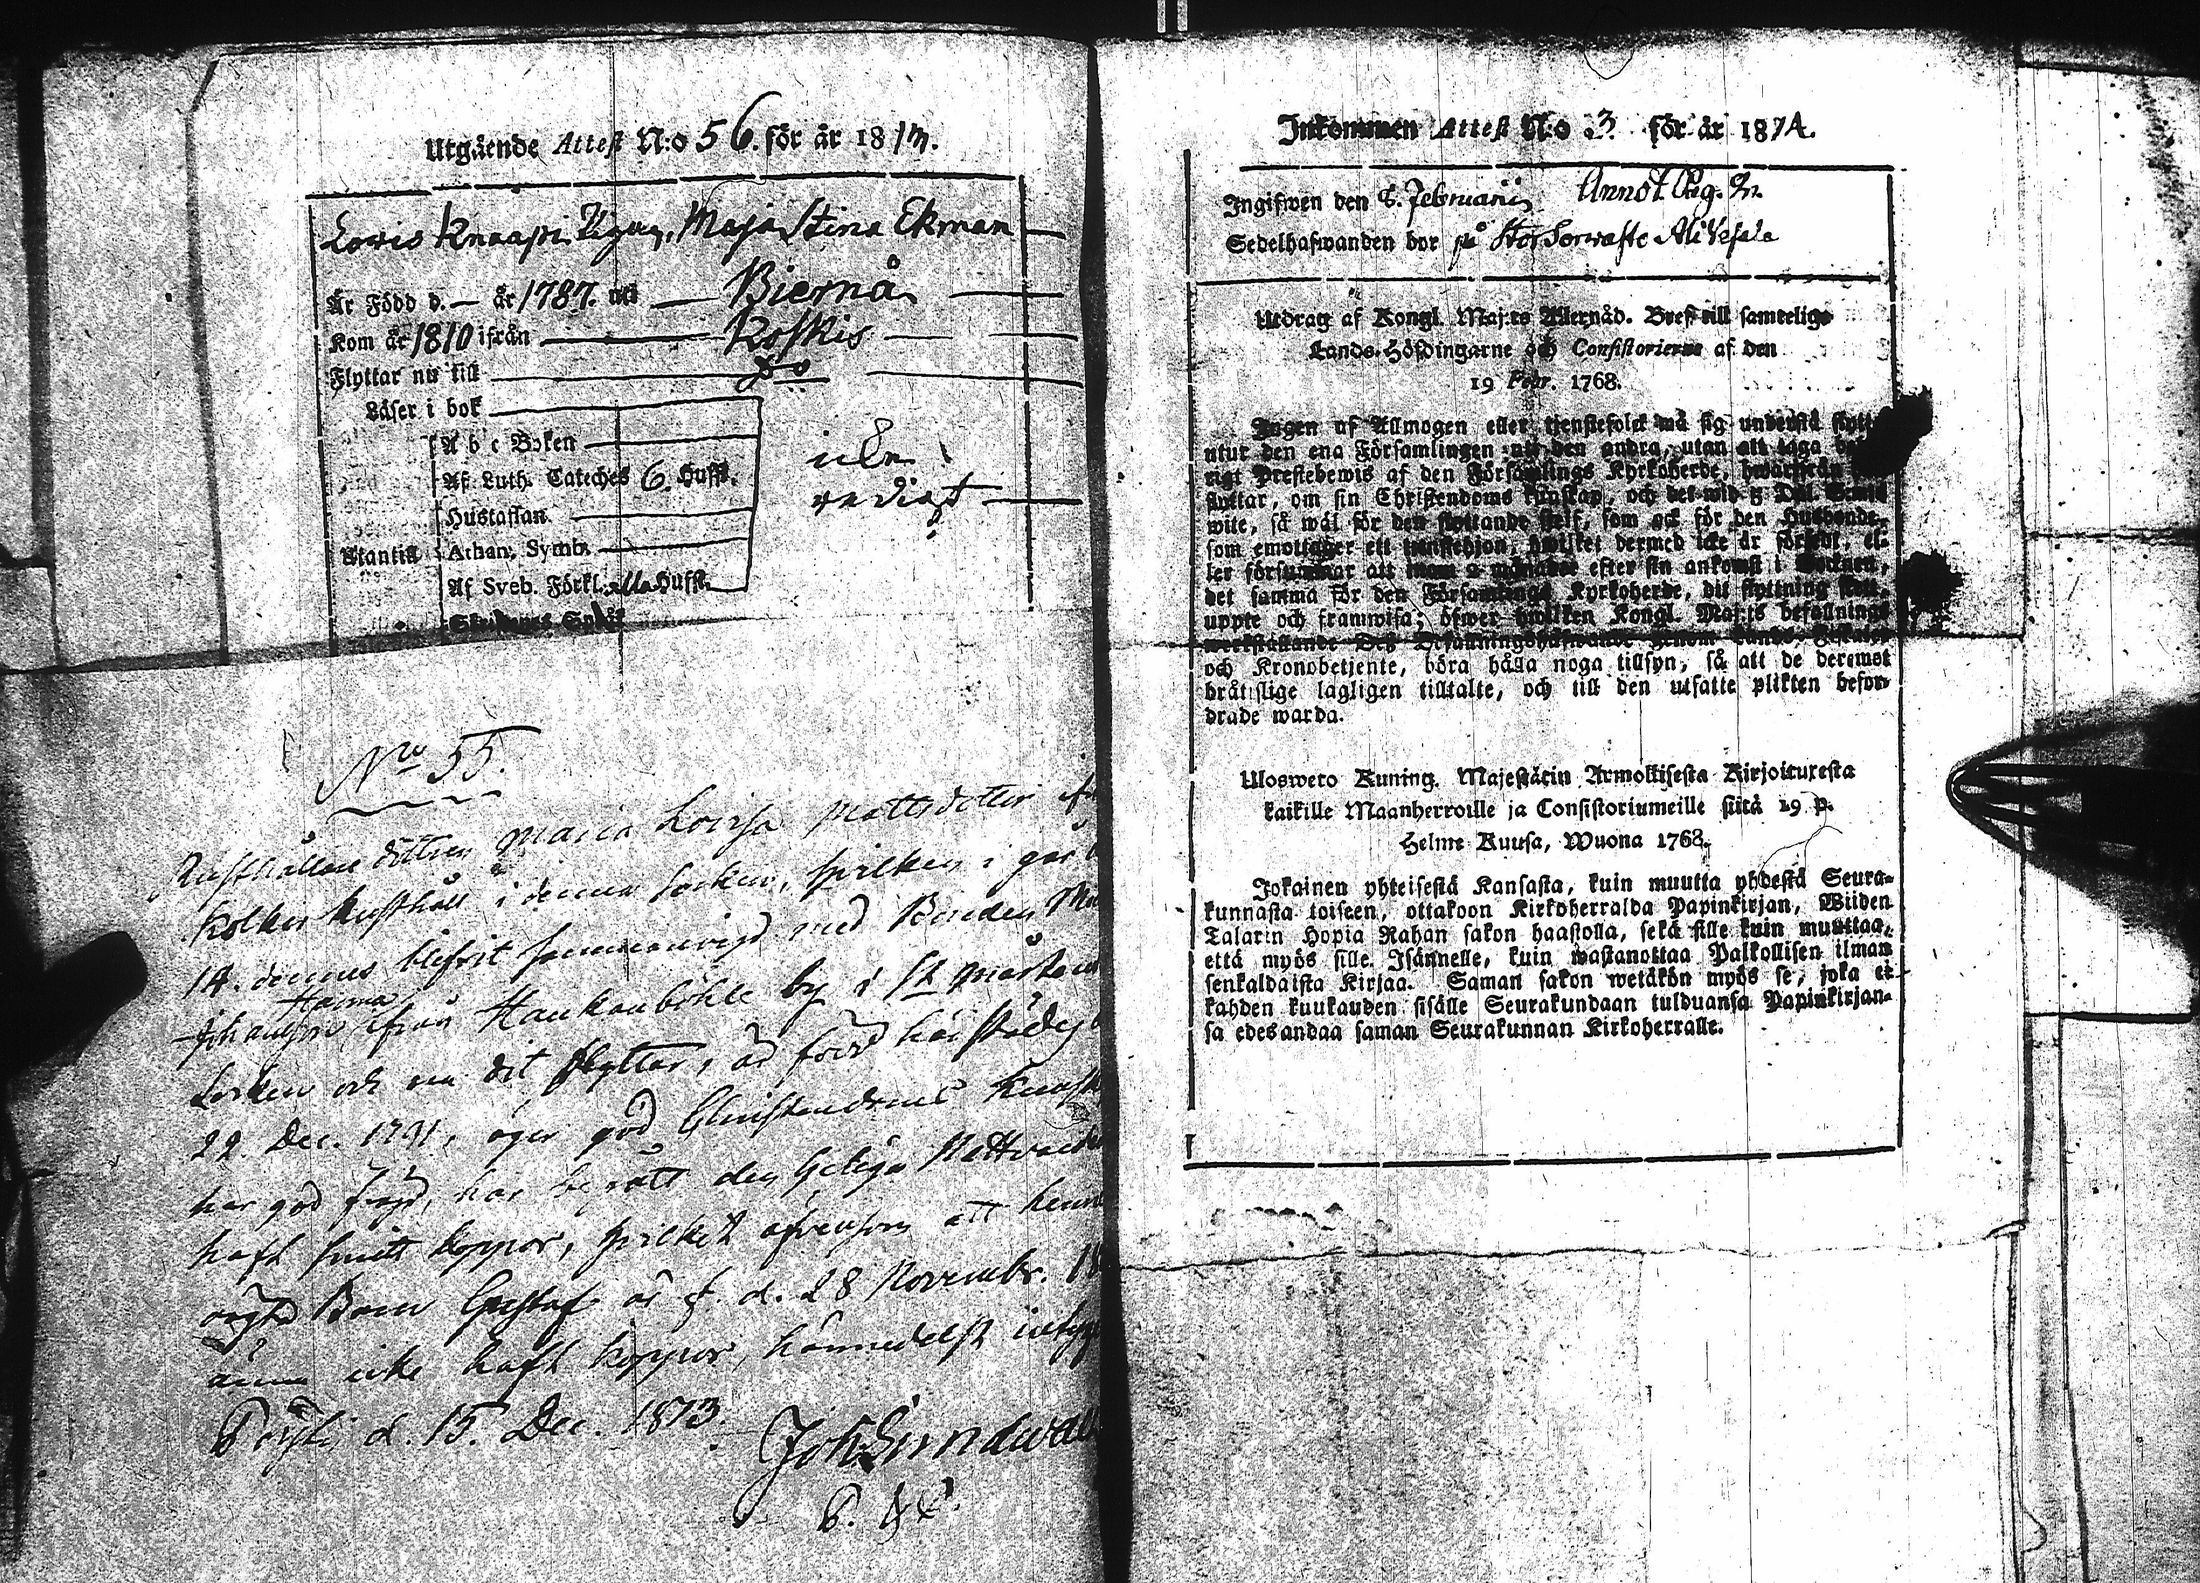 Utgående Attest N:o 56. för år 1813.
Lovis Knaapi Pigan, Maja Stina Ekman
Är Född d. — år 1787. uti — Biernå
Kom år 1810 ifrån — Koskis
Flyttar nu till — Do
Läser i bok
A b c Boken
Af Luth. Cateches 6. Hufst.
Hustaflan
Utantill Athan. Symb.
Af Sveb. Förkl. alla Hufst.
Skriftenes Språk
icke
vedigt
No 55.
Rusthållare dottren Maria Lovisa Mattsdotter
Rusthåll i denna Socken, hvilken i går
14. dennes blifvit sammanvigd med Bonden
Johansson Hanna ifrån Haukanböhle by i St Mårtens
Socken och nu dit flyttar, är född här städes
22. Dec. 1791, äger god Christendoms
har god frejd, har begått den heliga Nattvarden
haft smitt koppor, hvilket äfvensom att
ägta Barn Gustaf är f. d. 28 Novembr. 18
ännu icke haft koppor, härmedelst
d. 15. Dec. 1813.
Joh Sundwall
Inkommen Attest N:o 3. för år 1814.
Ingifwen den 8. Februarii Annot. Pag.
Sedelhafwanden bor på
Utdrag af Kongl. Maj:ts Allernåd. Bref till samtelige
Lands-Höfdingarne och Consistorierne af den
19 Febr. 1768.
Ingen af Allmogen eller tjenstefolck må sig understå flytta
utur den ena Församlingen uti den andra, utan att taga
rigt Prestebewis af den Församlings Kyrkoherde, hwarifrån
flyttar, om sin Christendoms kunskap, och det wid 5 Dal. Smts
wite, så wäl för den flyttande sielf, som ock för den Husbonde,
som emottager ett tienstehion, hwilket dermed icke är försedt, el-
ler försummar att inom 2 månader efter sin ankomst i Socknen,
det samma för den Församlings Kyrkoherde, dit flyttning sker,
uppte och framwisa; öfwer hwilken Kongl. Maj:ts befallnings
werkställande Des Befallningshafwande genom Lands-Fiskaler
och Kronobetjente, böra hålla noga tillsyn, så att de deremot
bråtslige lagligen tilltalte, och till den utsatte plikten befor-
drade warda.
Ulosweto Kuning. Majestätin Armollisesta Kirjoituxesta
kaikille Maanherroille ja Consistoriumeille siitä 19 p.
Helme Kuusa, Wuona 1768.
Jokainen yhteisestä Kansasta, kuin muutta yhdestä Seura-
kunnasta toiseen, ottakoon Kirkoherralda Papinkirjan, Wiiden
Talarin Hopia Rahan sakon haastolla, sekä sille kuin muuttaa,
että myös sille Isännelle, kuin wastanottaa Palkollisen ilman
senkaldaista Kirjaa. Saman sakon wetäkön myös se, joka ei
kahden kuukauden sisälle Seurakundaan tulduansa Papinkirjan-
sa edesandaa saman Seurakunnan Kirkoherralle.